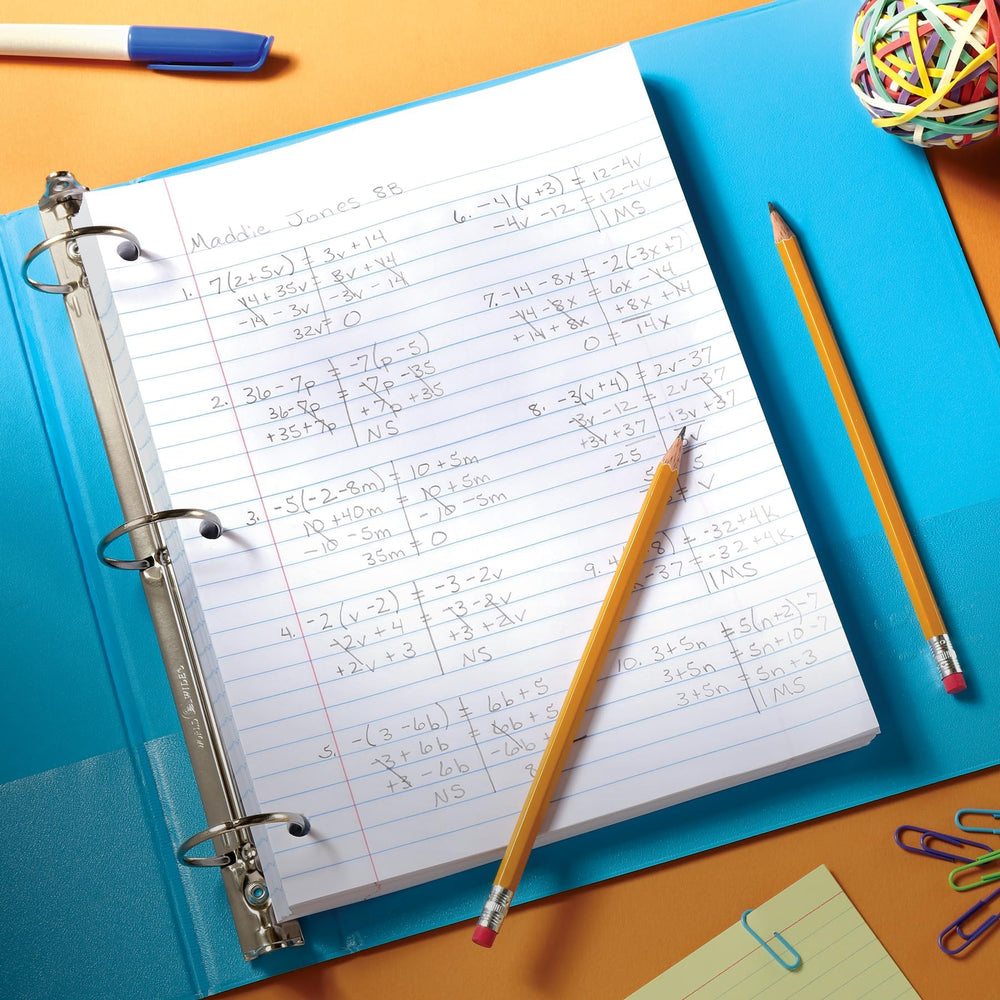 Maddie Jones 8B
1. 7(2+5v) = 3v + 14
14 + 35v = 3v + 14
-14 - 3v -3v - 14
32v = 0
2. 36 - 7p = -7(p - 5)
36 - 7p = -7p - 35
+35 + 7p +7p + 35
NS
3. -5(-2 - 8m) = 10 + 5m
10 + 40m = 10 + 5m
-10 - 5m = -10 - 5m
35m = 0
4. -2(v - 2) = -3 - 2v
-2v + 4 = -3 - 2v
+2v + 3 +3 + 2v
NS
5. -(3 - 6b) = 6b + 5
-3 + 6b = 6b + 5
+3 - 6b -6b +
NS
6. -4(v + 3) = 12 - 4v
-4v - 12 = 12 - 4v
IMS
7. -14 - 8x = -2(-3x + 7
-14 - 8x = 6x - 14
+14 + 8x +8x + 14
0 = 14x
8. -3(v + 4) = 2v - 37
-3v - 12 = 2v - 37
+3v + 37 -13v + 37
= 25
= v
9. 8) = -32 + 4k
-37 = -32 + 4k
IMS
10. 3 + 5n = 5(n + 2) - 7
3 + 5n = 5n + 10 - 7
3 + 5n = 5n + 3
IMS